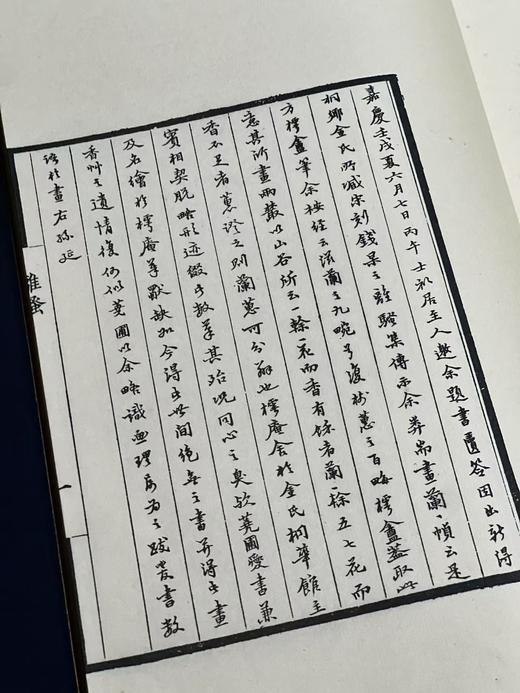 嘉慶壬戌夏六月七日丙午士礼居主人邀余題書匵答因出新得
桐鄉金氏所臧宋刻錢杲之離騷集傳示余并耑畫蘭一幀云是
方樗盦筆余按經云滋蘭之九畹兮復樹蕙之百畮樗盦蓋取此
意其所畫兩叢山谷所云一榦一花而香有餘者蘭一榦五七花而
香不足者蕙證之則蘭蕙可分辨也樗庵舍於金氏桐華館主
賓相契脫略形迹綴此數筆其殆況同心之臭歟蕘圃愛書兼
及名繪於樗庵筆獸缺如今得此世間絕無之書并得此畫
香艸之遺情復何似蕘圃以余略識畫理屬為之跋爰書數
語於畫右孫延
離騷
一